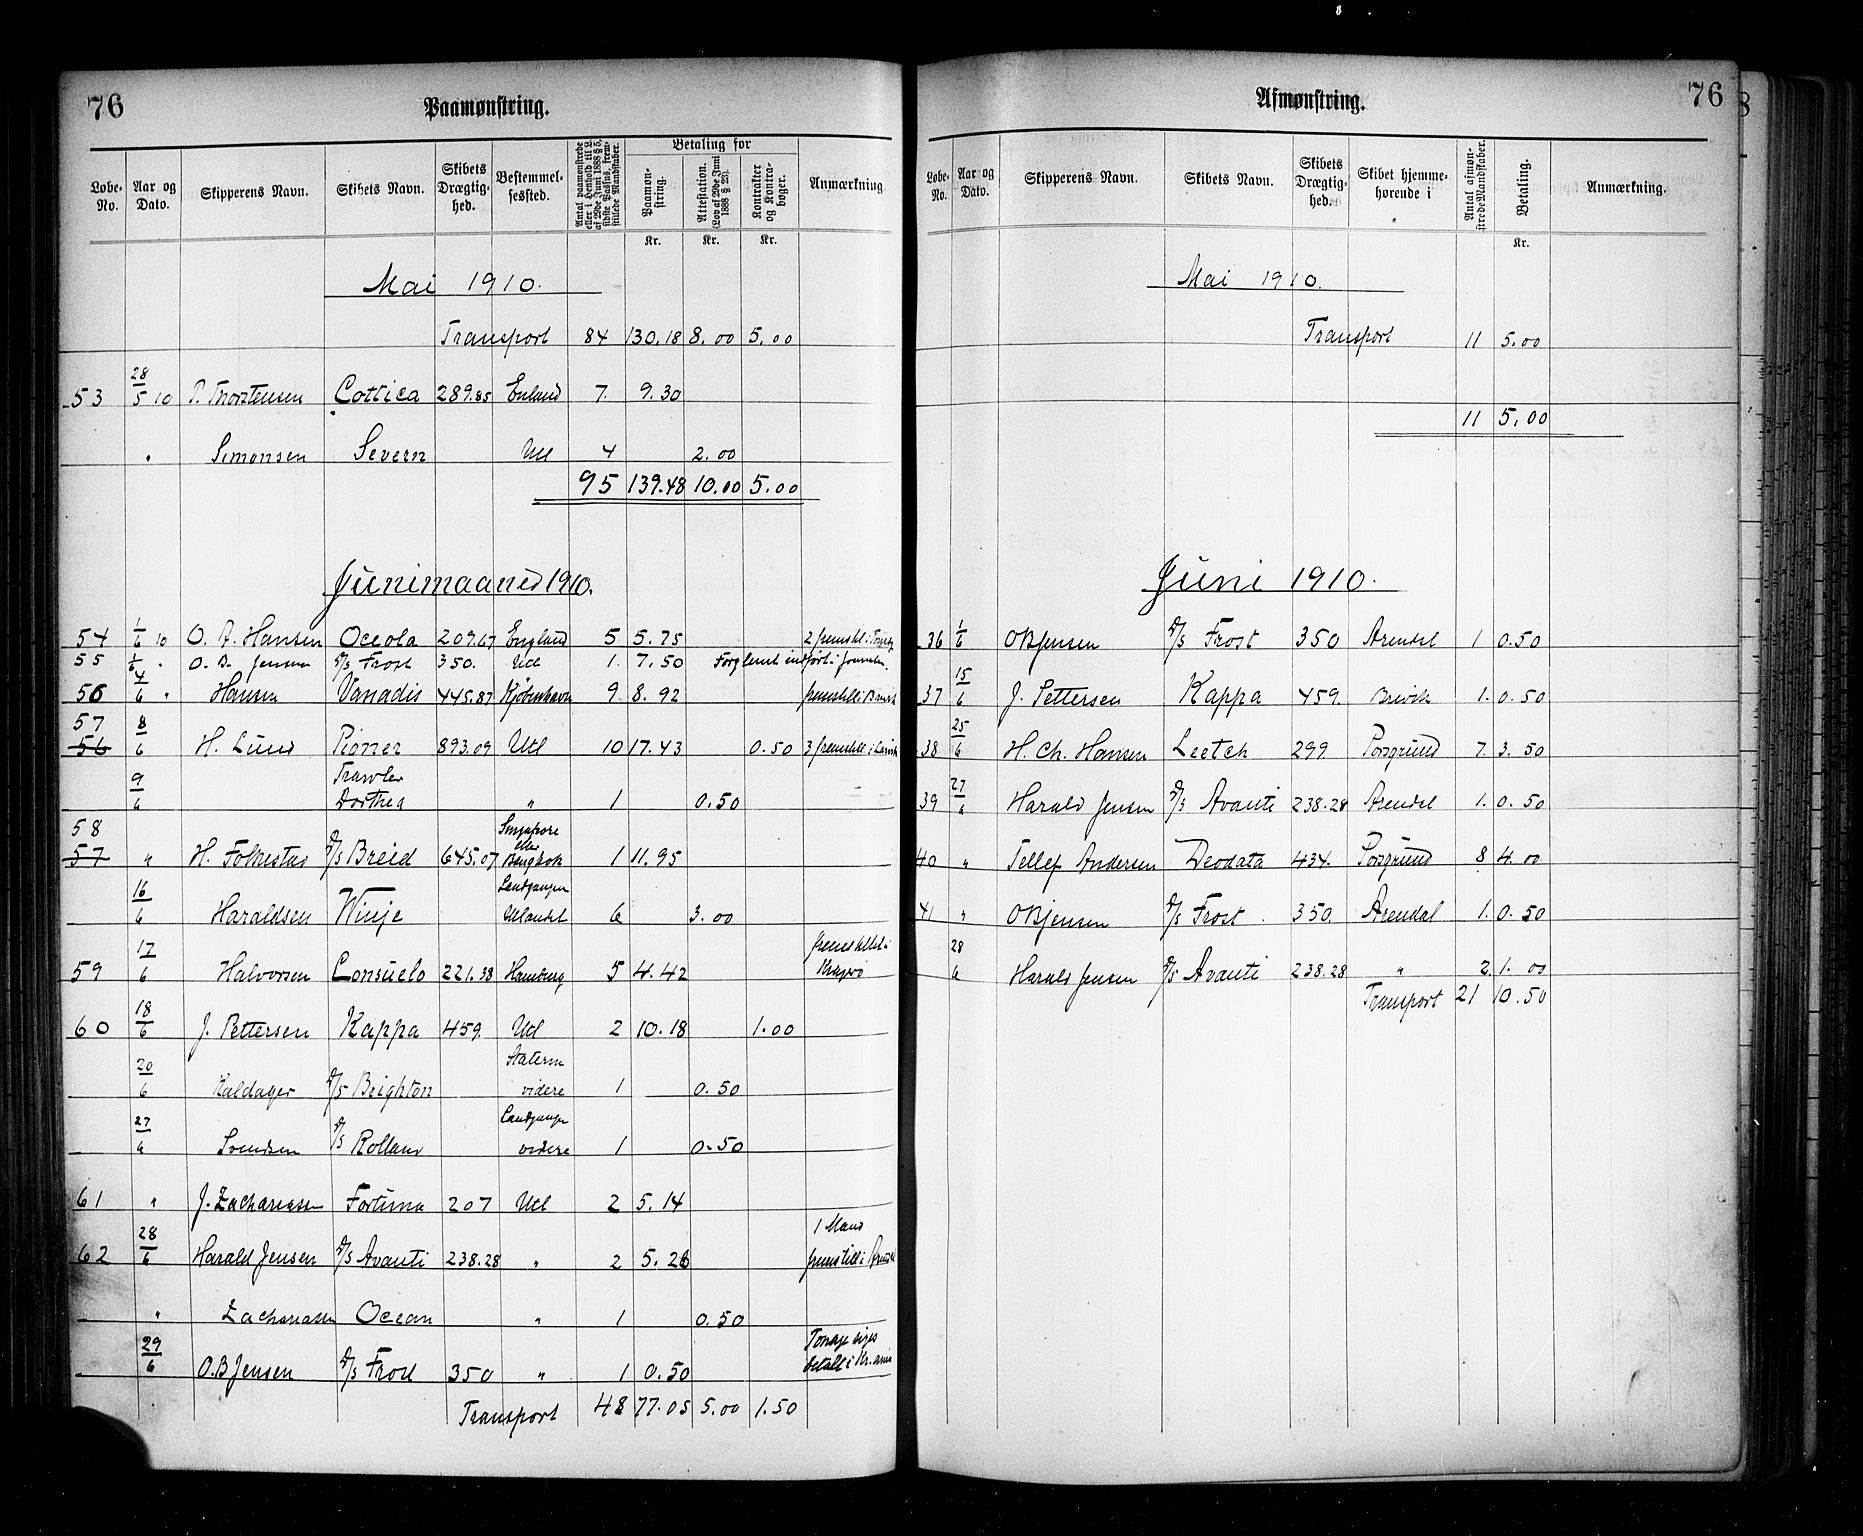 76 Paamønstring.
Løbe-No. Aar og Dato. Skipperens Navn. Skibets Navn. Skibets Drægtighed. Bestemmelsessted. Antal paamønstrede eller i Henhold til L. af 29de Juni 1888 § 5, sidste Passus, fremstillede Mandskaber. Betaling for Paamønstring. Attestation. (Lov af 29de Juni 1888 § 23). Kontrakter og Kontrabøger. Anmærkning
Kr. Kr. Kr.
Mai 1910.
Transport 84 130.18 8.00 5.00
53 28/5 10 P. Thorstensen Cottica 289.85 Enland 7. 9.30
" Simonsen Severn Utl 4 2.00
95 139.48 10.00 5.00
Junimaaned 1910.
54 1/6 10 O. A. Hansen Oceola 209.67 England 5 5.75 2 fremstil. i
55 1/6 " O. B. Jensen D/S Frost 350. Utl 1. 7.50 Forglemt indført i Journalen.
56 4/6 " Hansen Vanadis 445.87 Kjøbenhavn 9. 8.92 fremstill. i Brevik
57 8
56 6 H. Lund Pioner 893.09 Utl 10 17.43 0.50 3 fremstill. i Larvik
9/6 Trawler
Dorthea " 1 0.50
58 Singapore
57 " H. Folkestad D/S Breid 645.07 eller Bangkok 1 11.95
16/6 Langangen
Haraldsen Winje Utlandet 6 3.00
17/6 fremstillet i
59 Halvorsen Consuelo 221.38 Hamburg 5 4.42 Kragerø
60 18/6 J. Pettersen Kappa 459. Utl 2 10.18 1.00
20/6 Statern
Kaldager D/S Brighton videre 1 0.50
27/6 Langangen
Svendsen D/S Rolland videre 1 0.50
61 " J. Zachariassen Fortuna 207 Utl 2 5.14
28/6 1 Mand
62 Harald Jensen D/S Avanti 238.28 " 2 5.26 fremstill. i Arendal
" Zachariassen Ocean " 1 0.50
29/6 Tonage
O. B Jensen D/S Frost 350 " 1 0.50 betalt i Kr.ania
Transport 48 77.05 5.00 1.50
Afmønstring. 76
Løbe-No. Aar og Dato. Skipperens Navn. Skibets Navn. Skibets Drægtighed. Skibet hjemmehørende i Antal afmønstrede Mandskaber. Betaling. Anmærkning.
Kr.
Mai 1910.
Transport 11 5.00
11 5.00
Juni 1910.
36 1/6 O B Jensen D/S Frost 350 Arendal 1 0.50
37 15/6 J. Pettersen Kappa 459. Brevik 1. 0.50
38 25/6 H. Ch. Hansen Leetch 299. Porsgrund 7. 3.50
39 27/6 Harald Jensen D/S Avanti 238.28 Arendal 1. 0.50
40 " Tellef Andersen Deodata 434. Porsgrund 8 4.00
41 " O B Jensen D/S Frost. 350. Arendal 1. 0.50
28/6 Harald Jensen D/S Avanti 238.28 " 2 1.00
Transport 21 10.50